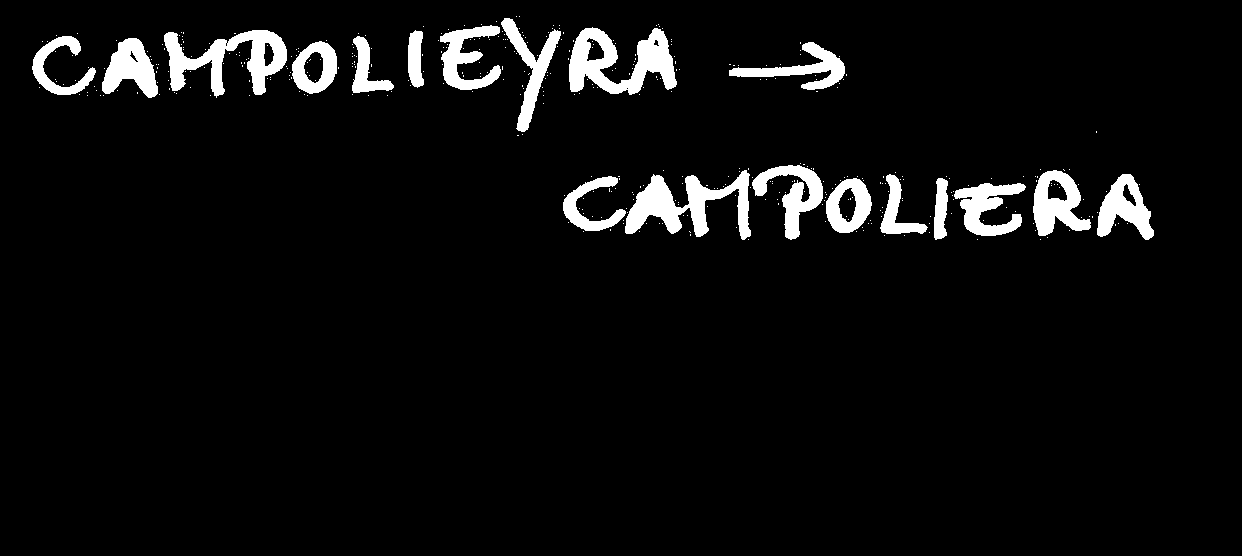 CAMPOLIEYRA →
CAMPOLIERA